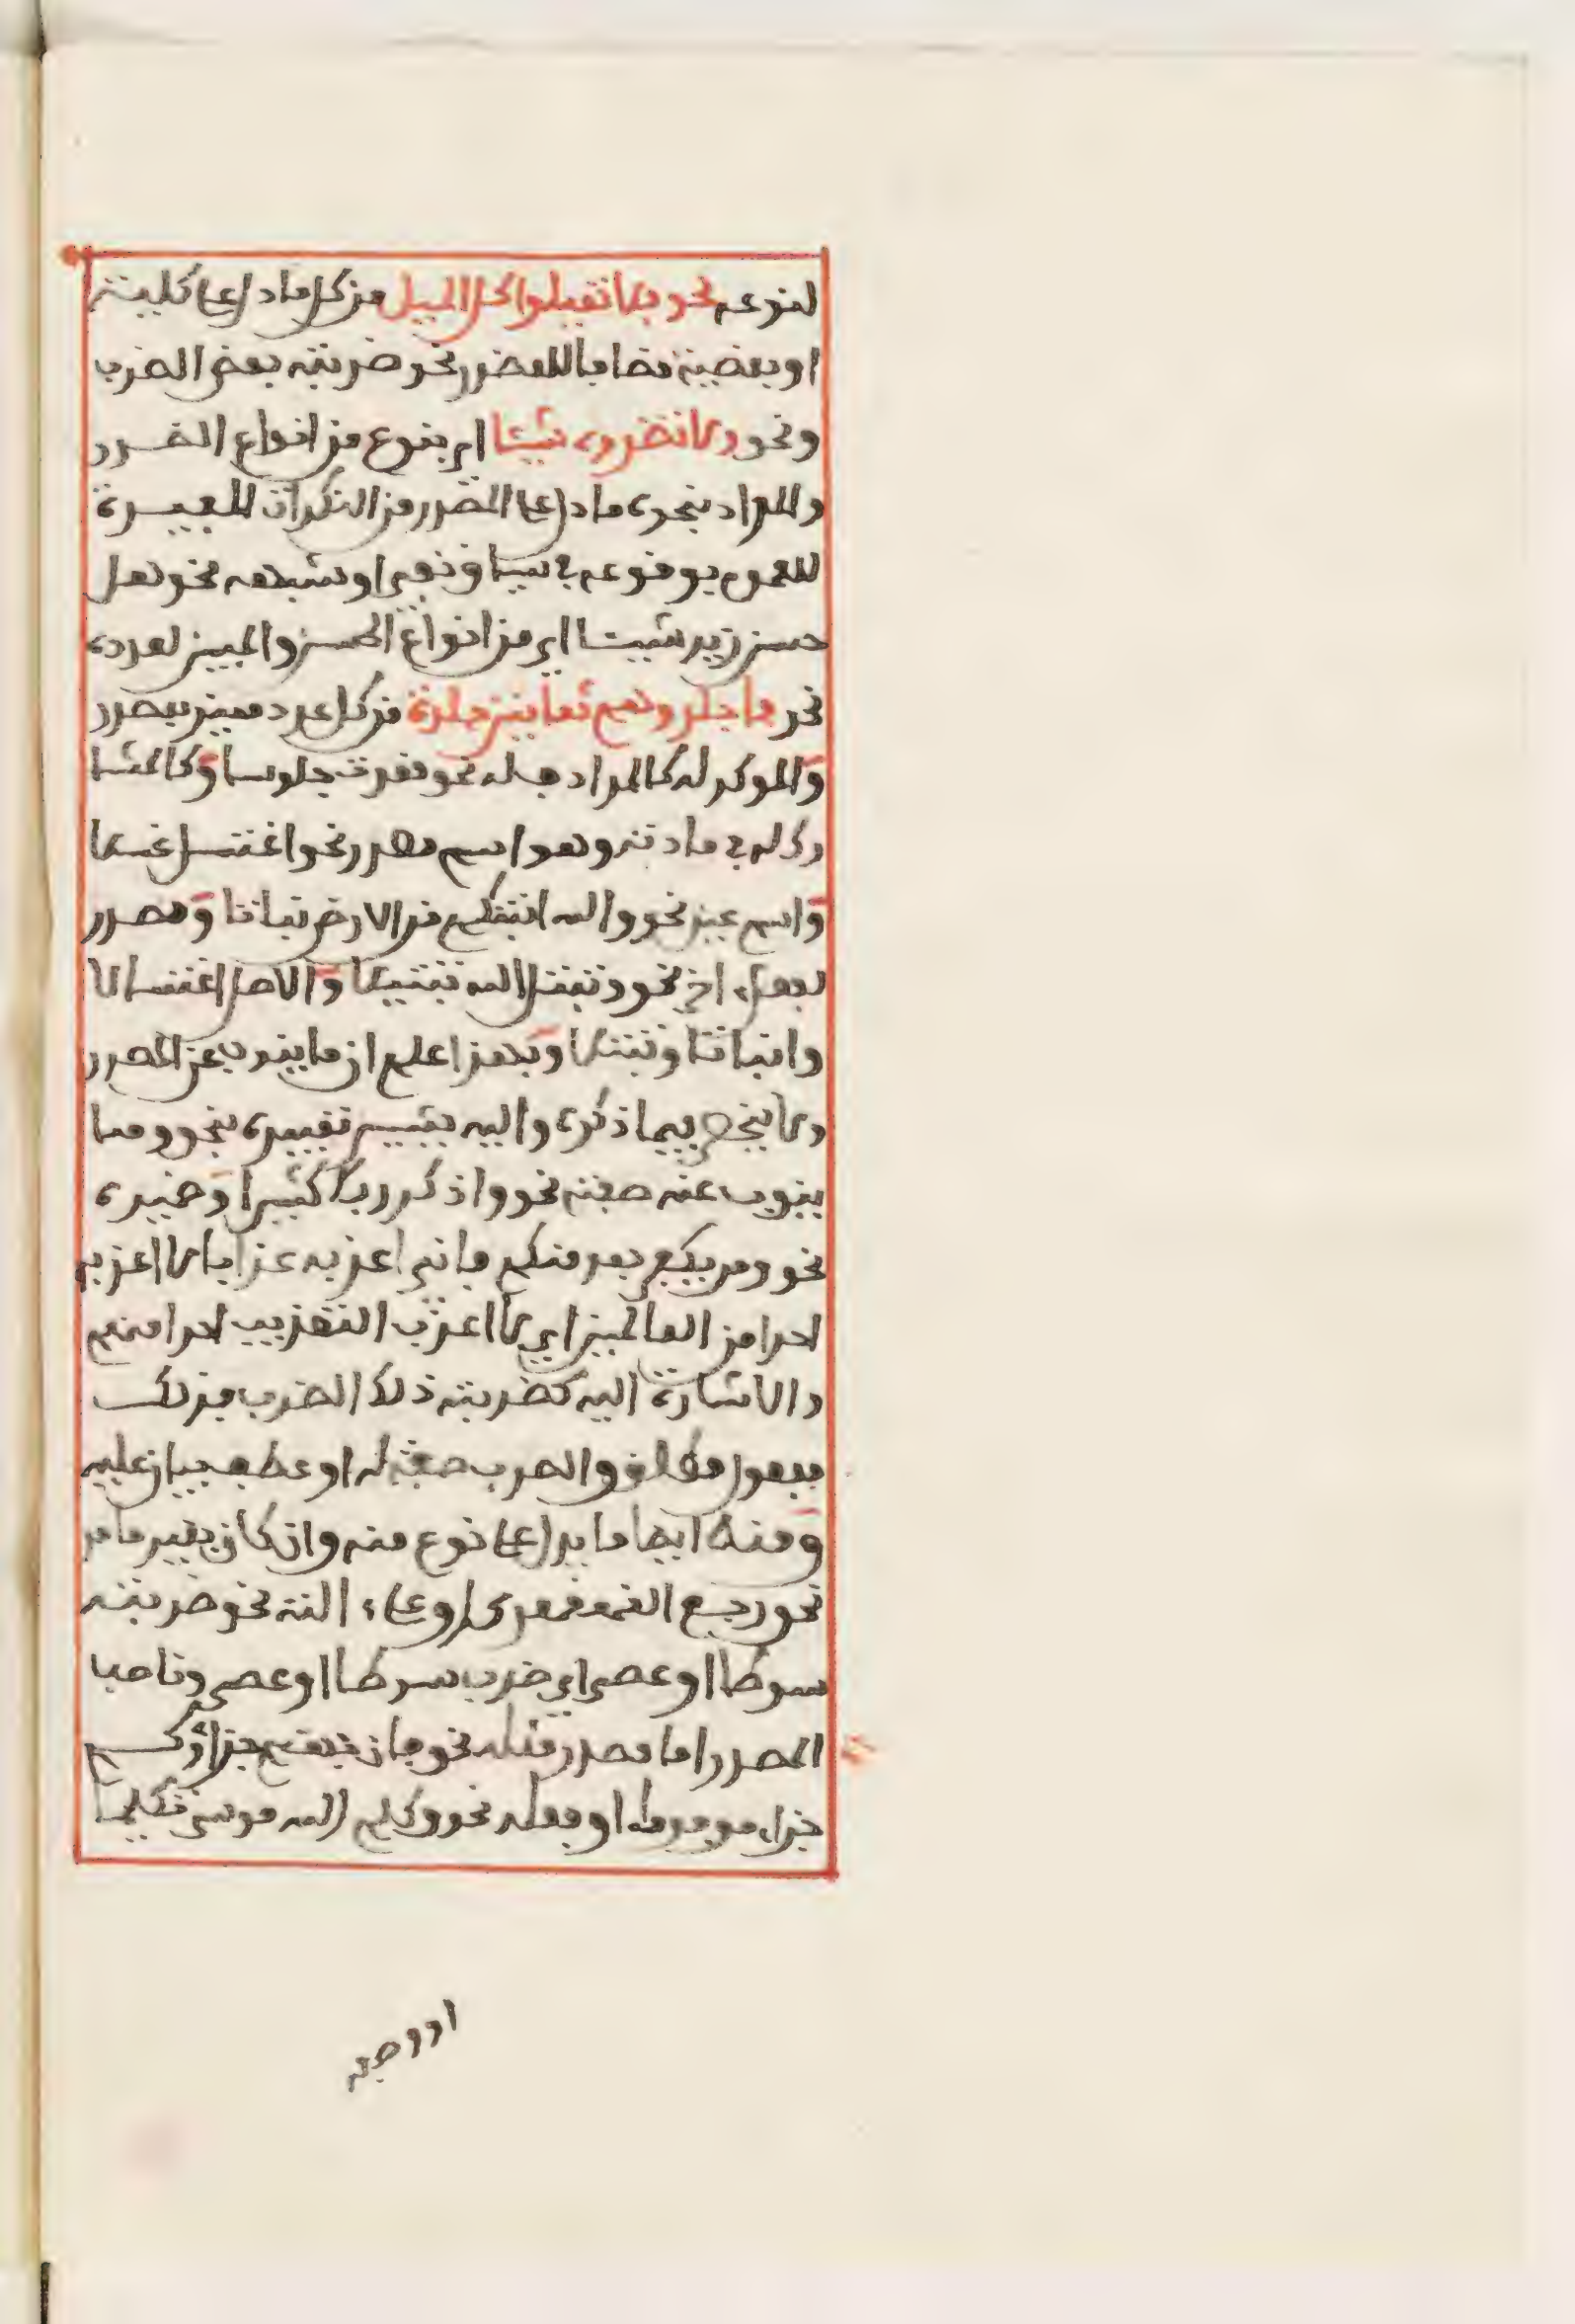 لنوعه نحو فلا تميلوا كل الميل من كل ما دل على كلية
او بعضية مضافا للمصدر نحو ضربته بعض الضرب
ونحو ولا تضروه شيئا اي بنوع من انواع الضرر
والمراد بنحوه ما دل على المصدر من النكرات المفيدة
للعموم بوقوعه في سياق نفي او شبهه نحو هل
حسن زيد شيئا اي من انواع الحسن والمبين لعدده
نحو فاجلدوهم ثمانين جلدة من كل عدد مميز بمصدر
والموكد له كالمرادف له نحو قعدت جلوسا وكالمشا
رك له في مادته وهو اسم مصدر نحو اغتسل غسلا
واسم عين نحو والله انبتكم من الارض نباتا ومصدر
لفعل اخر نحو وتبتل اليه تبتيلا والاصل اغتسالا
وانباتا وتبتلا وبهذا علم ان ما ينوب عن المصدر
لا ينحصر فيما ذكره واليه يشير تعبيره بنحو ومما
ينوب عنه صفته نحو واذكر ربك كثيرا وضميره
نحو ومن يكفر بعد منكم فاني اعذبه عذابا لا اعذبه
احدا من العالمين اي لا اعذب التعذيب احدا منهم
والاشارة اليه كضربته ذلك الضرب فذلك
مفعول مطلق والضرب صفة له او عطف بيان عليه
ومنه ايضا ما يدل على نوع منه وان كان بغير ما مر
نحو رجع القهقرى او على الته نحو ضربته
سوطا او عصى اي ضرب سوط او عصى وناصب
المصدر اما مصدر مثله نحو فان جهنم جزاؤكم
جزاء موفورا او فعله نحو وكلم الله موسى تكليما
او وصف